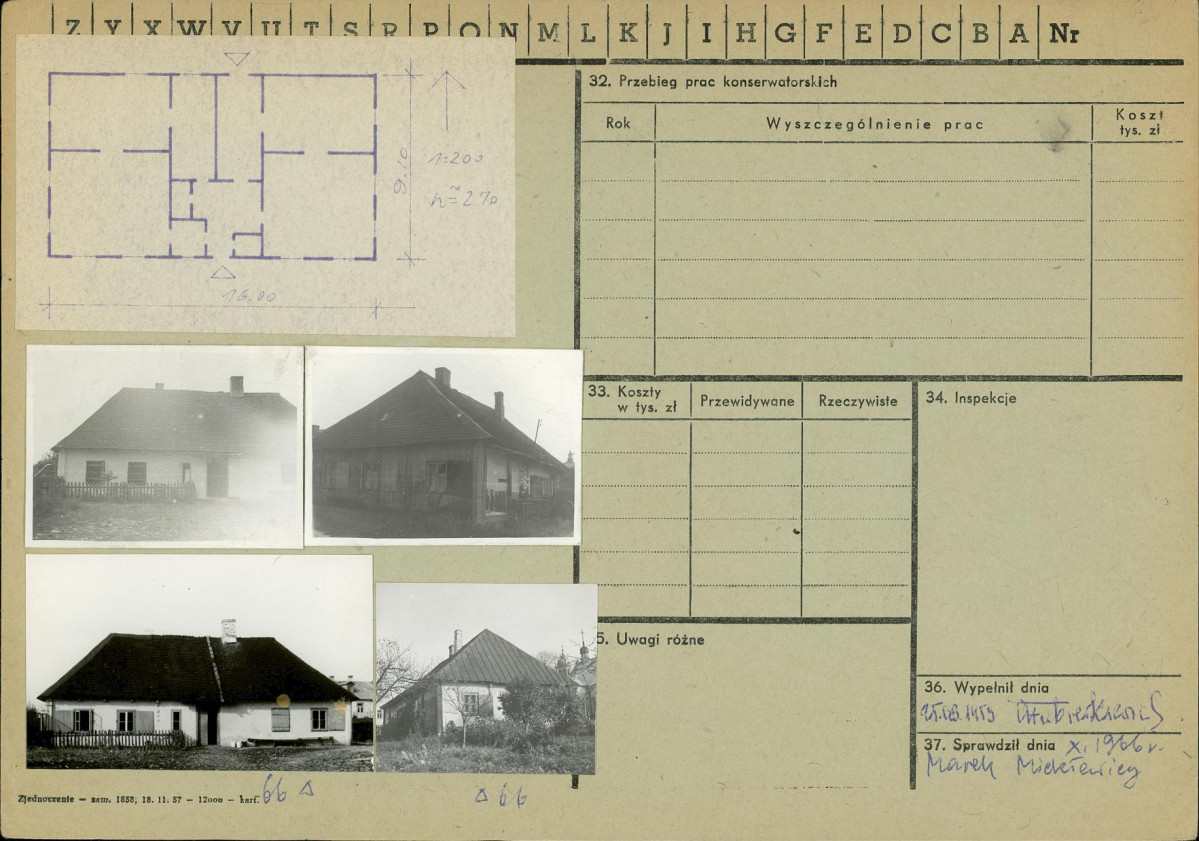 Z Y X W V U T S R P O N M L K J I H G F E D C B A Nr
9.10
1=200
16.90
32. Przebieg prac konserwatorskich
Rok
Wyszczególnienie prac
Koszt
tys. zł
33. Koszty
w tys. zł
Przewidywane
Rzeczywiste
34. Inspekcje
5. Uwagi różne
36. Wypełnił dnia
37. Sprawdził dnia X. 1966 r.
Marek
66
66
Zjednoczenie — zam. 1858, 18. 11. 57 — 12000 — kart.